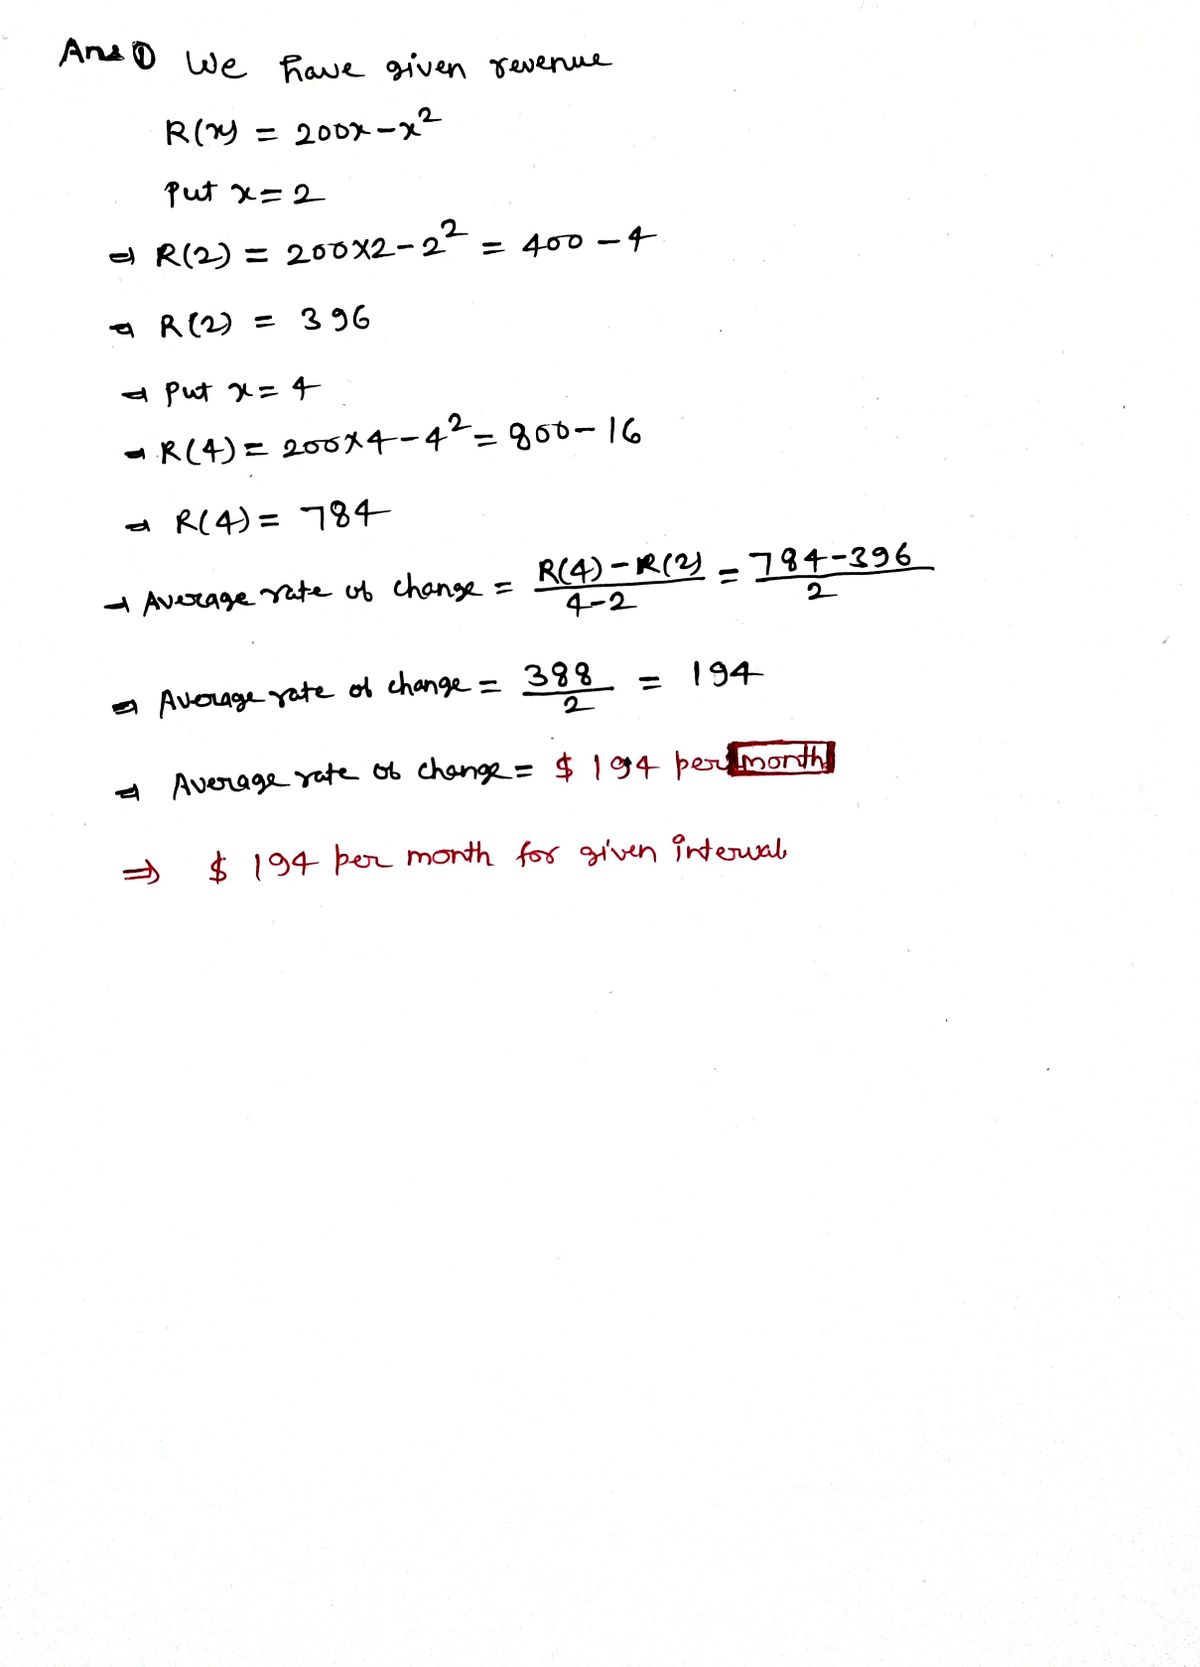 Ans ① We have given revenue
R(x) = 200x - x²
Put x = 2
⇒ R(2) = 200×2 - 2² = 400 - 4
⇒ R(2) = 396
⇒ Put x = 4
⇒ R(4) = 200×4 - 4² = 800 - 16
⇒ R(4) = 784
→ Average rate of change = R(4) - R(2) / 4-2 = 784 - 396 / 2
⇒ Average rate of change = 388 / 2 = 194
⇒ Average rate of change = $ 194 per month
⇒ $ 194 per month for given interval